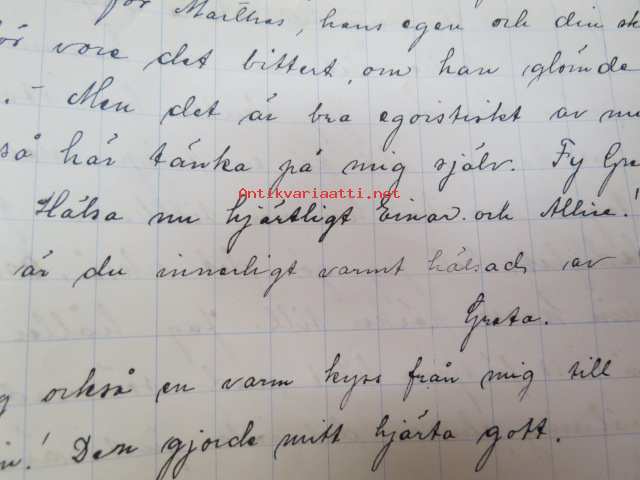 för Märthas, hans egen och din sk
vore det bittert, om han glömde
. - Men det är bra egoistiskt av m
så här tänka på mig själv. Fy Gre
Antikvariaatti.net
Hälsa nu hjärtligt Einar och Allice!
är du innerligt varmt hälsad av
Greta.
också en varm kyss från mig till
! Den gjorde mitt hjärta gott.